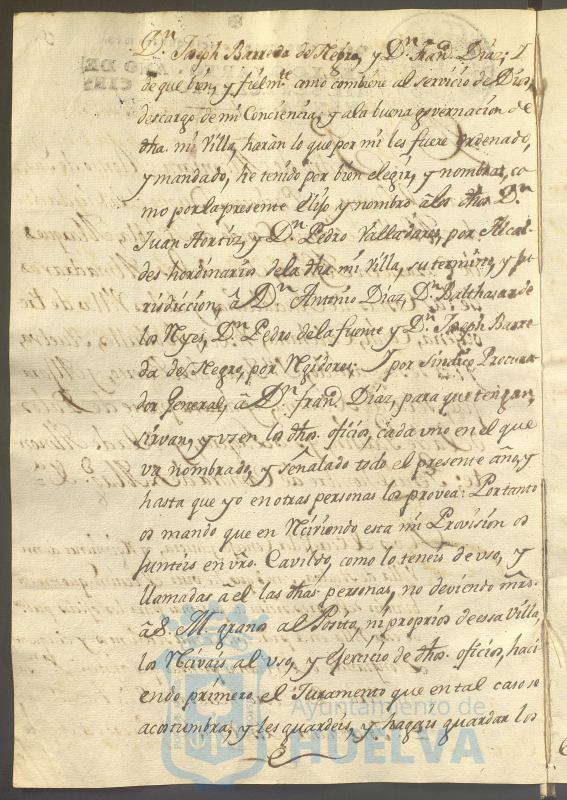 Dn. Joseph Barreda de Negro, y Dn. Frand. Diaz; I
de que bien, y fielmte. como combiene al servicio de Dios,
descargo de mi Conciencia, y ala buena governacion de
dha. mi Villa, haràn lo que por mi les fuere ordenado,
y mandado, he tenido por bien elegir, y nombrar, co
mo por la presente elijo y nombro â los dhos. Dn.
Juan Hortiz, y Dn. Pedro Valladares, por Alcal
des hordinarios dela dha mi Villa, su termino, y ju
risdiccion, â Dn. Antonio Diaz, Dn. Balthasar de
los Reyes, Dn. Pedro dela fuente y Dn. Joseph Barre
da de Negro, por Regidores: I por Sindico Procura
dor General, â Dn. Frand. Diaz, para que tengan,
sirvan, y vsen los dhos. oficios, cada vno en el que
va nombrado, y señalado todo el presente año, y
hasta que yo en otras personas los provea: Portanto
os mando que en Reciviendo esta mi Provision os
junteis en vro. Cavildo, como lo teneis de vso, y
llamadas â el las dhas. personas, no deviendo mrs.
â S. M. granos al Posito, ni proprios de essa Villa,
los Recivais al vso, y Ejercicio de dhos. oficios, haci
endo primero el Juramento que en tal caso se
acostumbra, y les guardeis, y hagais guardar los
Ayuntamiento de
HUELVA